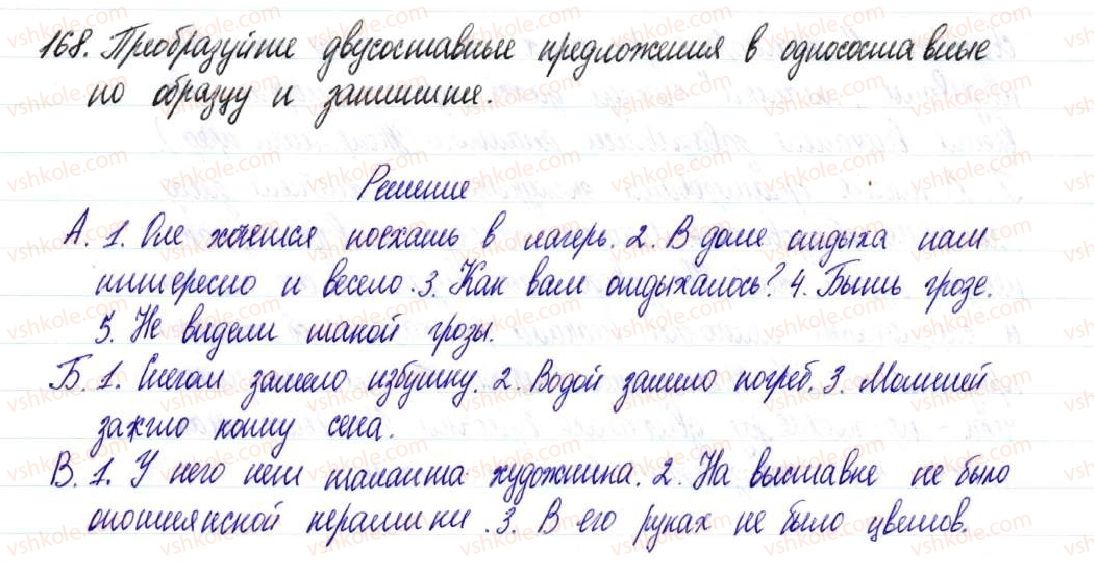 168. Преобразуйте двусоставные предложения в односоставные
по образцу и запишите.
Решение
А. 1. Оле хочется поехать в лагерь. 2. В доме отдыха нам
интересно и весело. 3. Как вам отдыхалось? 4. Быть грозе.
5. Не видели такой грозы.
Б. 1. Снегом замело избушку. 2. Водой залило погреб. 3. Молнией
зажгло копну сена.
В. 1. У него нет таланта художника. 2. На выставке не было
опошнянской керамики. 3. В его руках не было цветов.